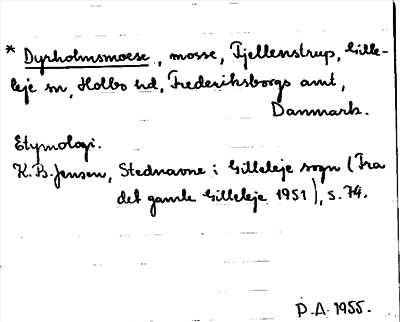 * Dyrholmsmose, mosse, Fjellenstrup, Gille-
leje sn, Holbo hd, Frederiksborgs amt,
Danmark.
Etymologi.
K.B.Jensen, Stednavne i Gilleleje sogn (Fra
det gamle Gilleleje 1951), s. 74.
D.A. 1955.